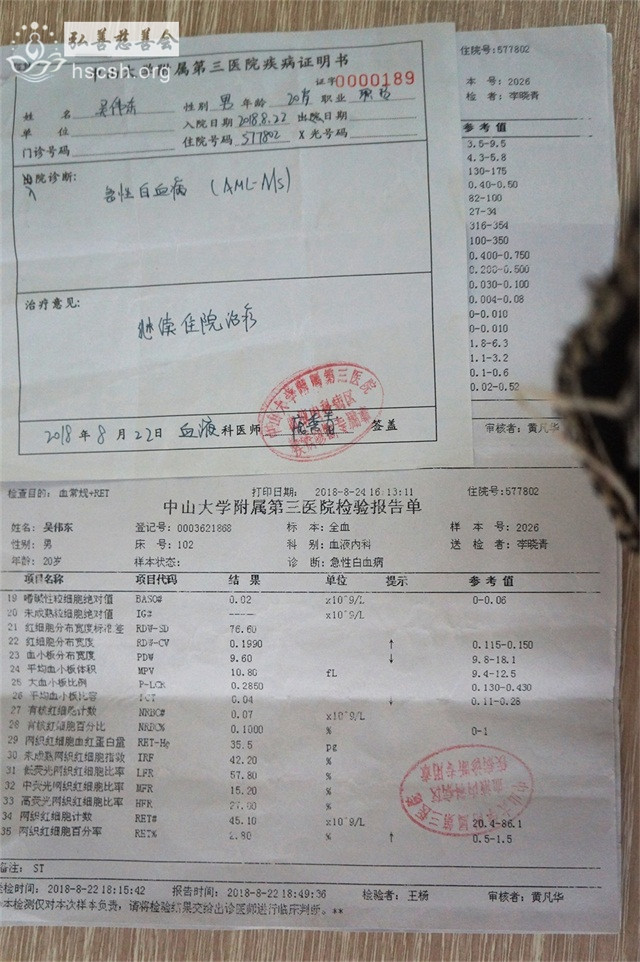 弘善慈善会
hscsh.org
中山大学附属第三医院疾病证明书
证字0000189
姓 名 吴伟东 性别 男 年龄 20岁 职业
单 位 入院日期 2018.8.22 出院日期
门诊号码 住院号码 577802 X光号码
院诊断:
入
急性白血病 (AML-M5)
治疗意见:
继续住院治疗
2018年8月22日 血液科医师 签盖
中山大学附属第三医院
疾病诊断专用章
住院号:577802
本 号: 2026
检 者: 李晓青
参 考 值
3.5-9.5
4.3-5.8
130-175
0.40-0.50
82-100
27-34
316-354
100-350
0.400-0.750
0.200-0.500
0.030-0.100
0.004-0.08
0-0.010
0-0.010
1.8-6.3
1.1-3.2
0.1-0.6
0.02-0.52
审核者: 黄凡华
检查目的: 血常规+RET 打印日期: 2018-8-24 16:13:11 住院号:577802
中山大学附属第三医院检验报告单
姓名: 吴伟东 登记号: 0003621868 标 本: 全血 样 本 号: 2026
性别: 男 床 号: 102 科 别: 血液内科 送 检 者: 李晓青
年龄: 20岁 样本状态: 诊 断: 急性白血病
项目名称 项目代码 结 果 单位 提示 参 考 值
19 嗜碱性粒细胞绝对值 BASO# 0.02 x10^9/L 0-0.06
20 未成熟粒细胞绝对值 IG# ---- x10^9/L
21 红细胞分布宽度标准差 RDW-SD 76.60
22 红细胞分布宽度 RDW-CV 0.1990 ↑ 0.115-0.150
23 血小板分布宽度 PDW 9.60 ↓ 9.8-18.1
24 平均血小板体积 MPV 10.80 fL 9.4-12.5
25 大血小板比例 P-LCR 0.2850 0.130-0.430
26 平均血小板比容 PCT 0.04 ↓ 0.11-0.28
27 有核红细胞计数 NRBC# 0.07 x10^9/L
28 有核红细胞百分比 NRBC% 0.1000 % 0-1
29 网织红细胞血红蛋白量 RET-He 35.5 pg
30 未成熟网织红细胞指数 IRF 42.20 %
31 低荧光网织红细胞比率 LFR 57.80 %
32 中荧光网织红细胞比率 MFR 15.20 %
33 高荧光网织红细胞比率 HFR 27.00 %
34 网织红细胞计数 RET# 45.10 x10^9/L 20.4-86.1
35 网织红细胞百分率 RET% 2.80 % ↑ 0.5-1.5
中山大学附属第三医院
血液内科病区
疾病诊断专用章
备注: ST
检时间: 2018-8-22 18:15:42 报告时间: 2018-8-22 18:49:36 检验者: 王杨 审核者: 黄凡华
本检测仅对本次样本负责,请将检验结果交给出诊医师进行临床判断。**